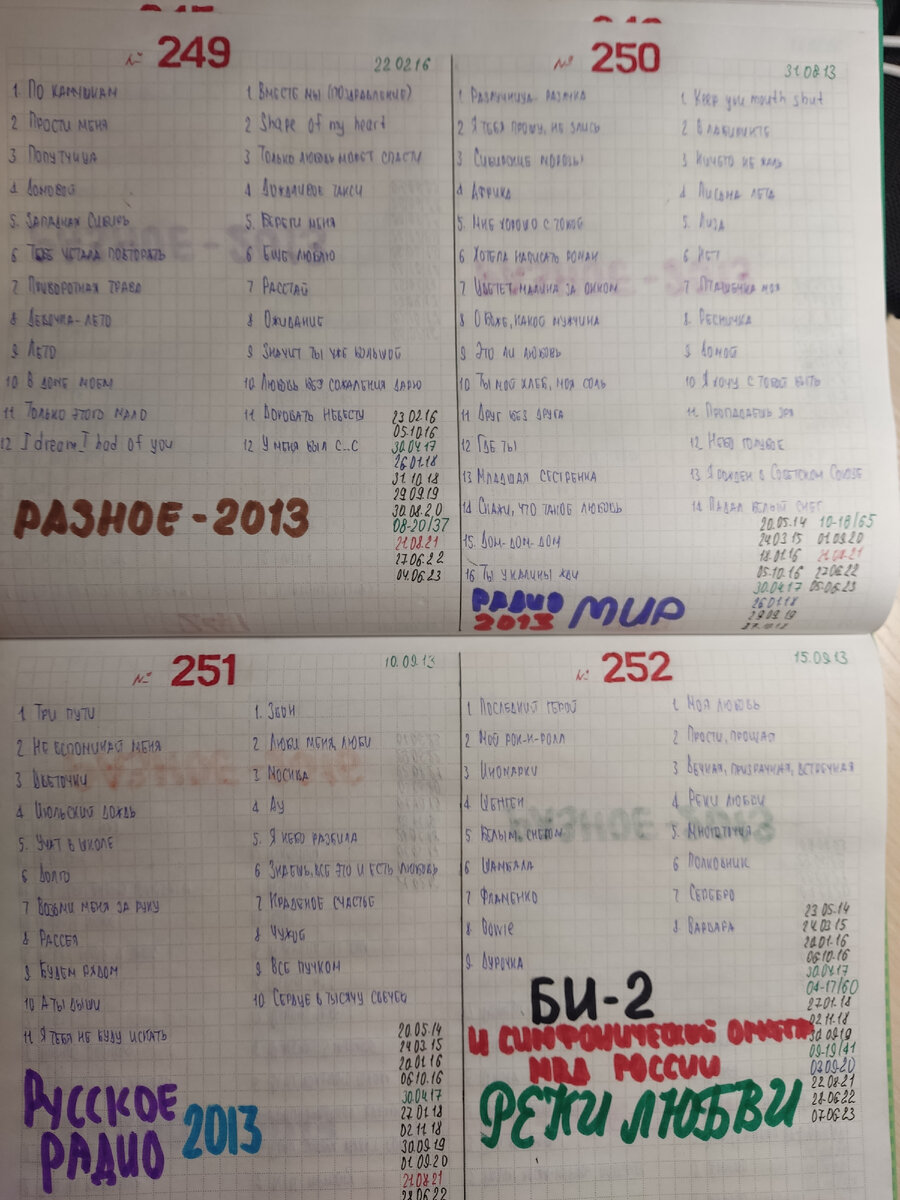 № 249
22.02.16
1. По камушкам
2 Прости меня
3 Попутчица
4 Домовой
5. Западная Сибирь
6 Тебе устала повторять
7 Приворотная трава
8 Девочка-лето
9 Лето
10 В доме моем
11 Только этого мало
12 I dream_I had of you
1 Вместе мы (поздравление)
2 Shape of my heart
3 Только любовь может спасти
4 Дождливое такси
5. Береги меня
6 Еще люблю
7 Расстай
8 Ожидание
9 Значит ты уже большой
10. Любовь без сожаления дарю
11 Воровать невесту
12 У меня был с...с
23 02.16
05.10.16
30.04.17
26.01.18
31.10.18
29.09.19
30.08.20
08-20/37
21.08.21
27.06.22
04.06.23
РАЗНОЕ - 2013
№ 250
31.08.13
1 Разлучница-разлука
2 Я тебя прошу, не злись
3 Сибирские морозы
4 Африка
5. Мне хорошо с тобой
6 Хотела написать роман
7 Цветет малина за окном
8 О Боже, какой мужчина
9 Это ли любовь
10 Ты мой хлеб, моя соль
11 Друг без друга
12 Где ты
13 Младшая сестренка
14 Скажи, что такое любовь
15. Дом-дом-дом
16 Ты у калины жди
1 Keep you mouth shut
2 В лабиринте
3 Ничего не жаль
4 Письма лета
5 Лиза
6 Нет
7 Пташечка моя
8. Ресничка
9 Домой
10 Я хочу с тобой быть
11 Пропадаешь зря
12. Небо голубое
13 Я рожден в Советском Союзе
14 Падал белый снег
20.05.14
24.03.15
18.01.16
05.10.16
30.04.17
26.01.18
29.09.19
10-18/65
01.09.20
21.08.21
27.06.22
05.06.23
РАДИО МИР
2013
№ 251
10.09.13
1 Три пути
2 Не вспоминай меня
3 Цветочки
4 Июльский дождь
5. Учат в школе
6 Долго
7 Возьми меня за руку
8 Рассея
9 Будем рядом
10 А ты дыши
11 Я тебя не буду искать
1. Звон
2 Люби меня, люби
3 Москва
4 Ау
5. Я небо разбила
6 Знаешь, все это и есть любовь
7 Краденое счастье
8 Чужой
9 Все пучком
10 Сердце в тысячу свечей
20.05.14
24.03.15
20.01.16
06.10.16
30.04.17
27.01.18
02.11.18
30.09.19
01.09.20
21.08.21
28.06.22
РУССКОЕ
РАДИО 2013
№ 252
15.09.13
1 Последний герой
2 Мой рок-н-ролл
3 Иномарки
4 Шенген
5 Белым снегом
6 Шамбала
7 Фламенко
8 Bowie
9 Дурочка
1 Моя любовь
2 Прости, прощай
3 Вечная, призрачная, встречная
4 Реки любви
5. Многоточия
6 Полковник
7 Серебро
8 Варвара
23.05.14
24.03.15
20.01.16
06.10.16
30.04.17
04-17/60
27.01.18
02.11.18
30.09.19
09-19/41
03.09.20
22.08.21
28.06.22
07.06.23
БИ-2
И СИМФОНИЧЕСКИЙ ОРКЕСТР
МВД РОССИИ
РЕКИ ЛЮБВИ